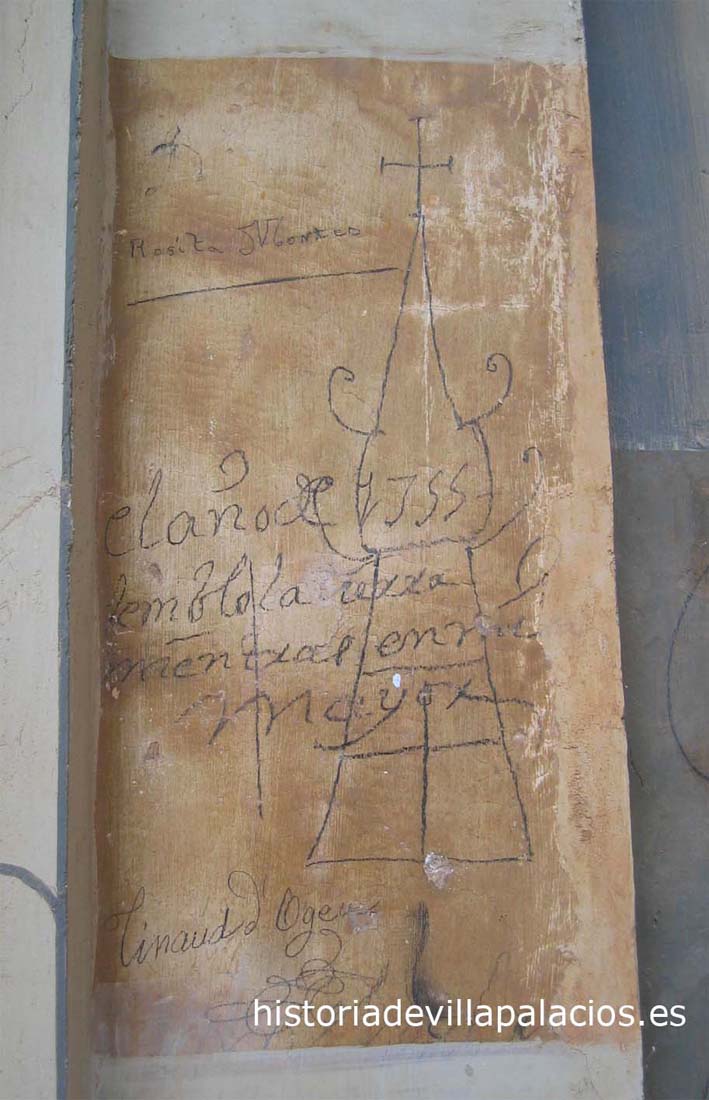 Rosita Montes
el año de 1755
temblo la tierra
mientras en
mayor
Tinaud d'Ogeu
historiadevillapalacios.es